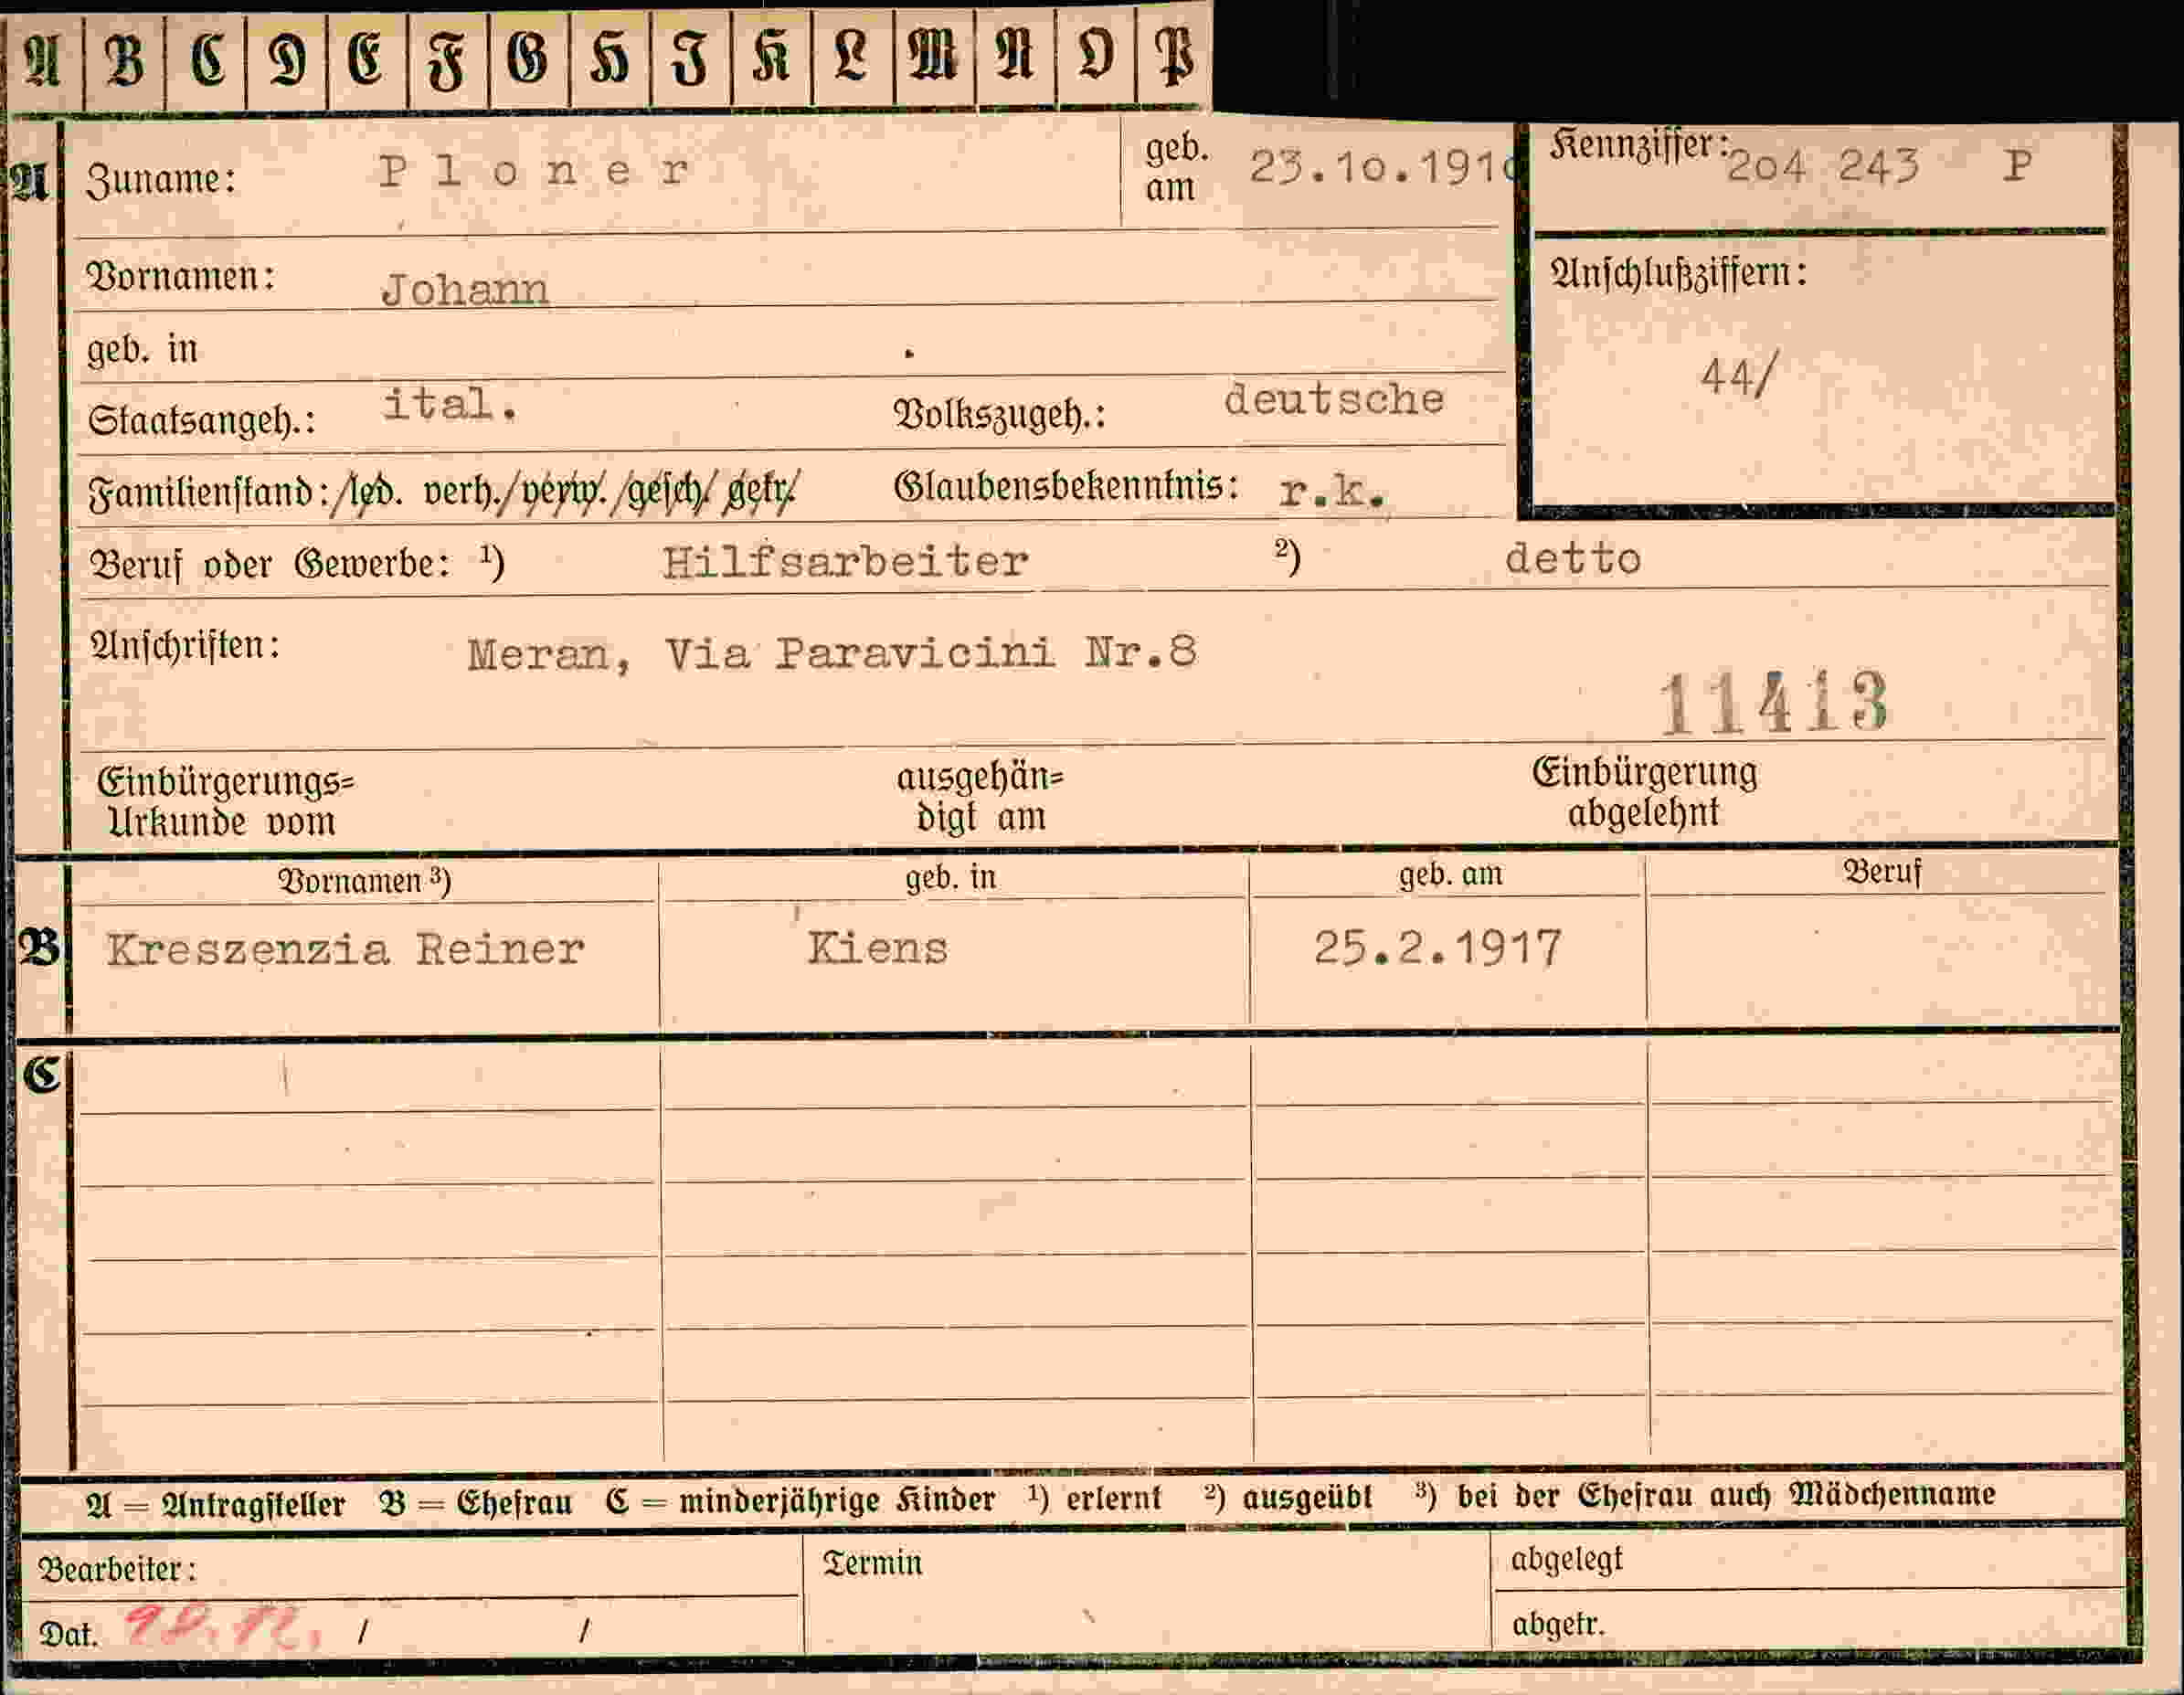 A B C D E F G H I K L M N O P
A Zuname: Ploner geb. am 23.10.191o Kennziffer: 2o4 243 P
Vornamen: Johann Anschlußziffern:
geb. in
44/
Staatsangeh.: ital. Volkszugeh.: deutsche
Familienstand: /led. verh./verw./gesch/ getr/ Glaubensbekenntnis: r.k.
Beruf oder Gewerbe: ¹) Hilfsarbeiter ²) detto
Anschriften: Meran, Via Paravicini Nr.8
11413
Einbürgerungs= ausgehän= Einbürgerung
Urkunde vom digt am abgelehnt
Vornamen ³) geb. in geb. am Beruf
B Kreszenzia Reiner Kiens 25.2.1917
C
A = Antragsteller B = Ehefrau C = minderjährige Kinder ¹) erlernt ²) ausgeübt ³) bei der Ehefrau auch Mädchenname
Bearbeiter: Termin abgelegt
Dat. / / abgetr.